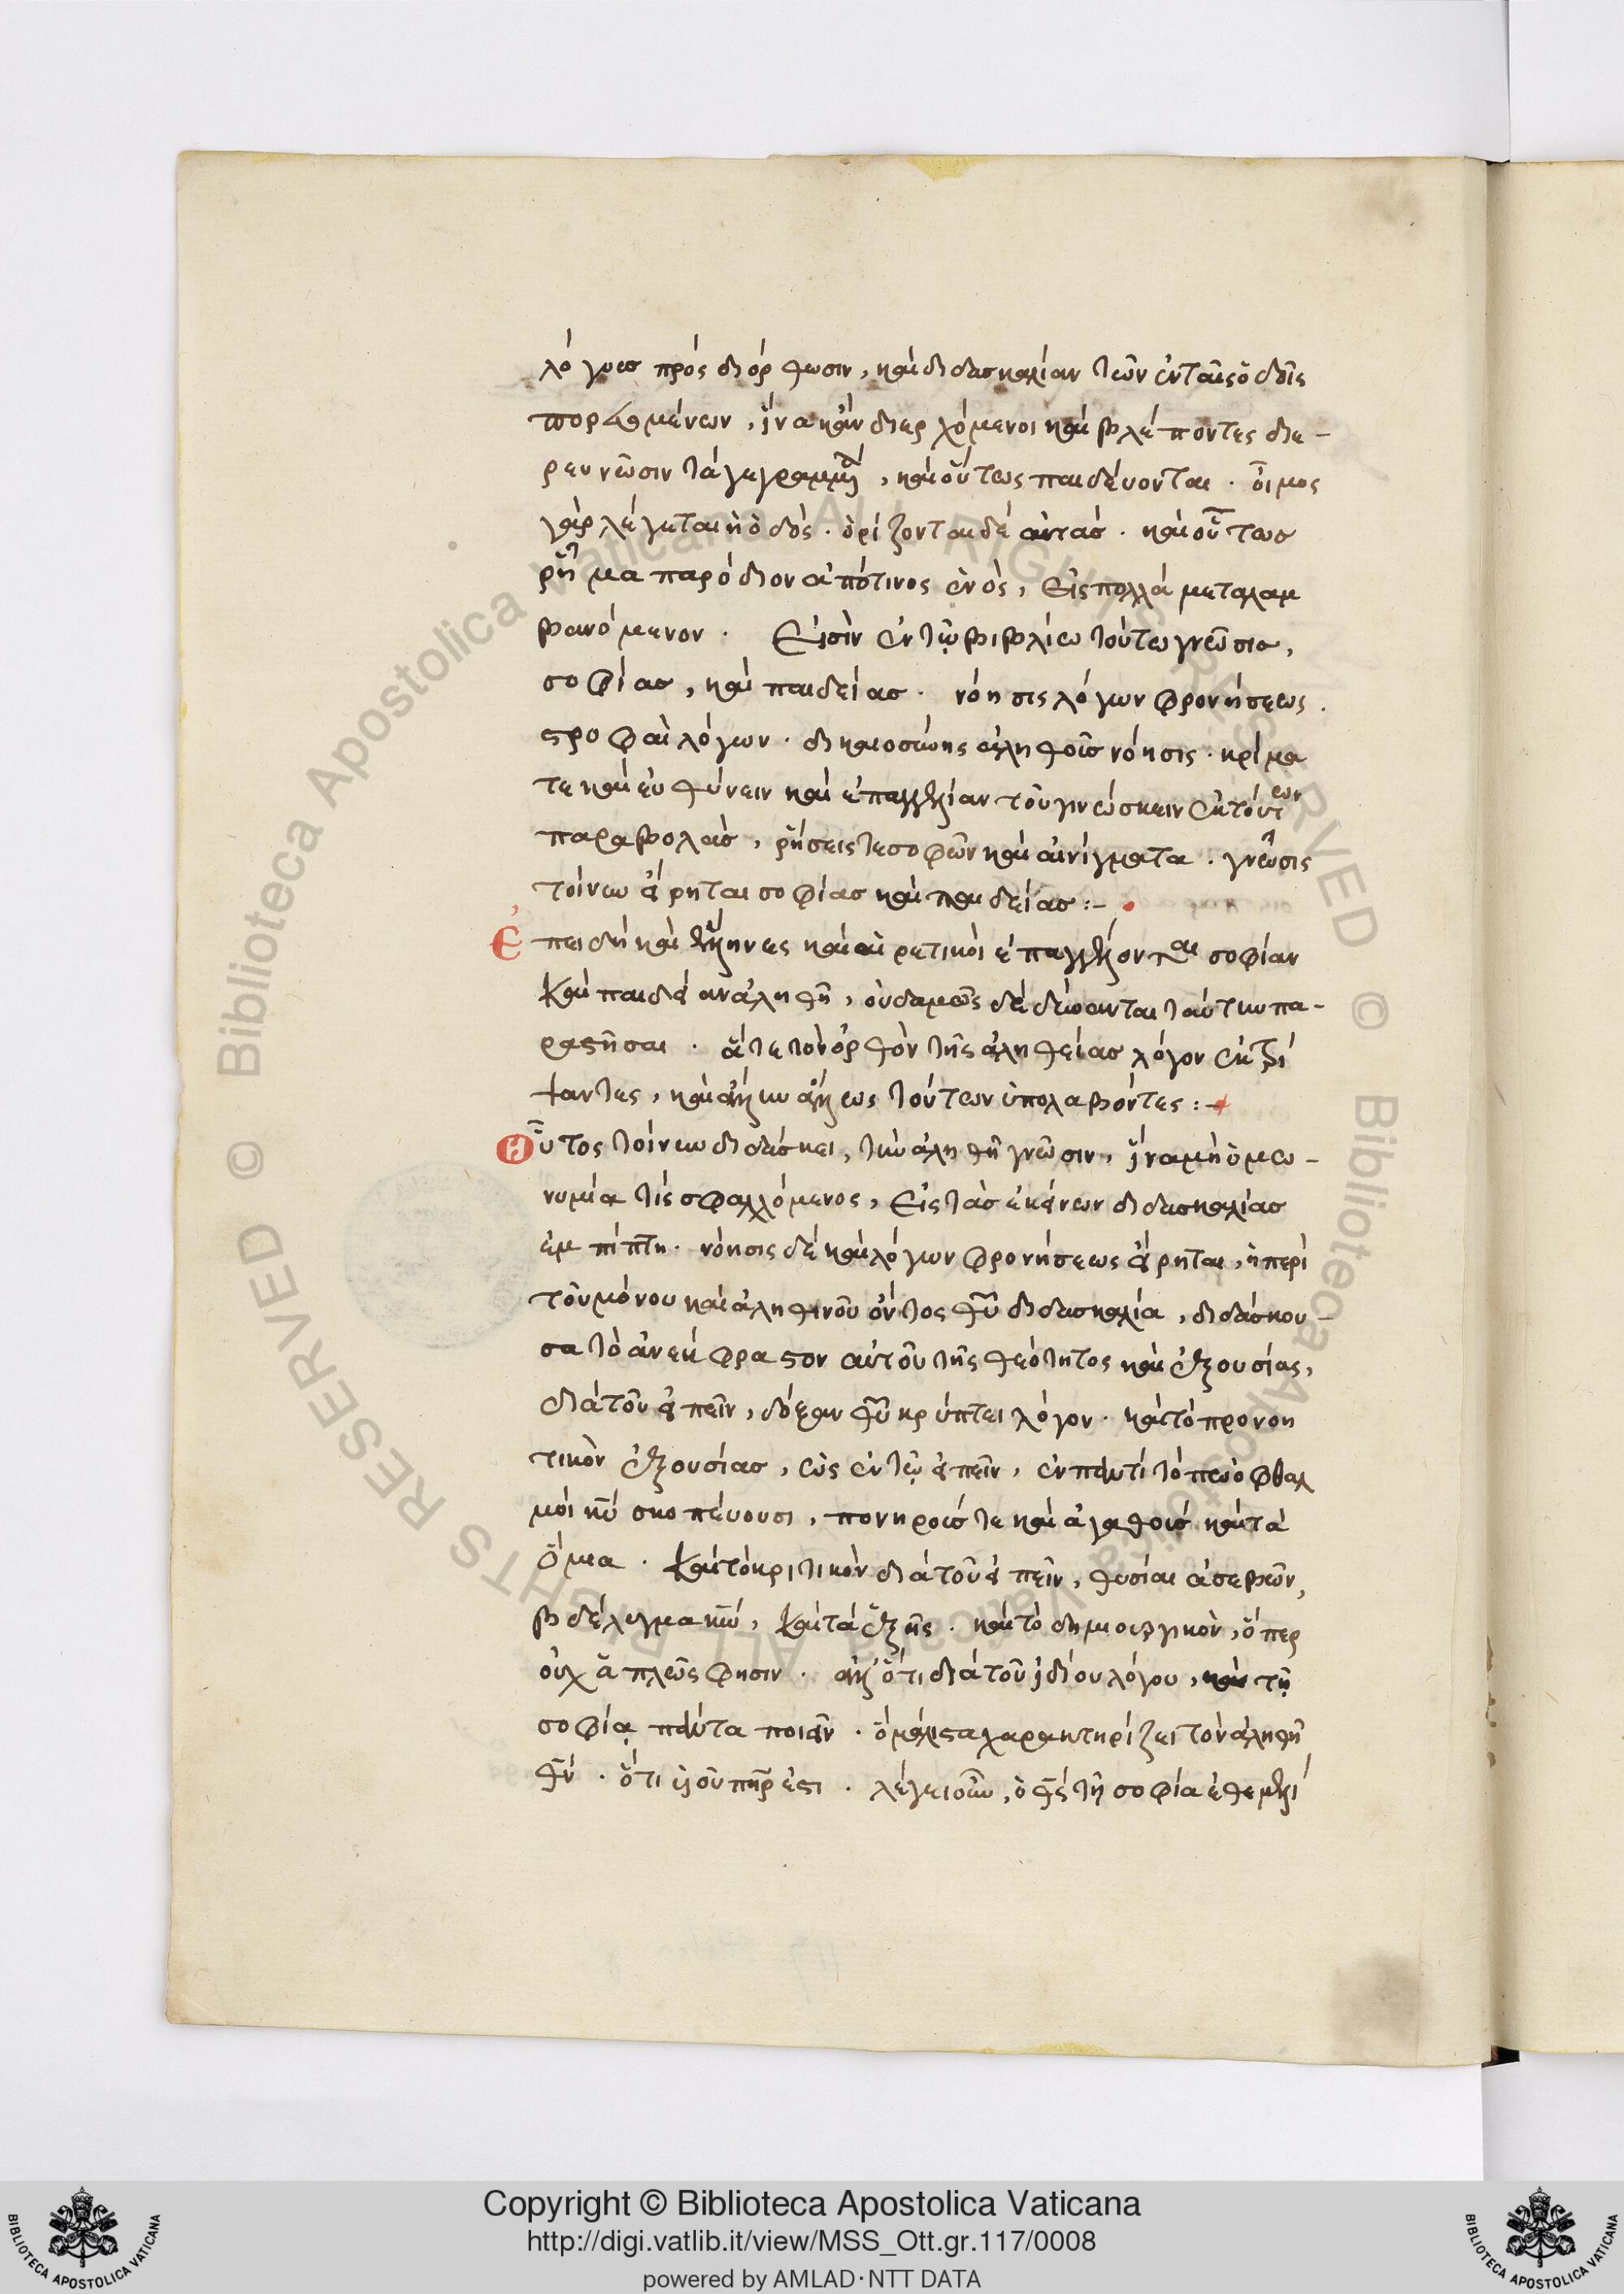 λόγους πρὸς διόρθωσιν, καὶ διδασκαλίαν τῶν ἐν ταῖς ὁδοῖς
πορευομένων, ἵνα κἂν διερχόμενοι καὶ βλέποντες διε-
ρευνῶσιν τὰ γεγραμμένα, καὶ οὕτως παιδεύονται. οἶμος
γὰρ λέγεται ἡ ὁδός. ὁρίζονται δὲ αὐτάς. καὶ οὕτως
ῥῆμα παρόδιον ἀπό τινος ἑνός, εἰς πολλὰ μεταλαμ
βανόμενον. Εἰσὶν ἐν τῷ βιβλίω τούτω γνῶσις,
σοφίας, καὶ παιδείας. νόησις λόγων φρονήσεως.
στροφαὶ λόγων. δικαιοσύνης ἀληθοῦς νόησις. κρίμα
τε καὶ εὐθύνειν καὶ ἐπαγγελίαν τοῦ γινώσκειν ἐκ τούτων
παραβολάς, ῥήσεις τε σοφῶν καὶ αἰνίγματα. γνῶσις
τοίνυν εἴρηται σοφίας καὶ παιδείας:-
Ἐπειδὴ καὶ ἕλληνες καὶ αἱρετικοὶ ἐπαγγέλλονται σοφίαν
καὶ παιδείαν ἀληθῆ, οὐδαμῶς δὲ δύνανται ταύτην πα-
ραστῆσαι. ἅτε τὸν ὀρθὸν τῆς ἀληθείας λόγον ἐκτρί
ψαντες, καὶ ἄλλην ἄλλως τούτων ὑπολαβόντες:-
Οὗτος τοίνυν διδάσκει, τὴν ἀληθῆ γνῶσιν, ἵνα μὴ ὁμω-
νυμία τίς σφαλλόμενος, εἰς τὰς ἐκείνων διδασκαλίας
ἐμπίπτη. νόησις δὲ καὶ λόγων φρονήσεως εἴρηται, ἡ περὶ
τοῦ μόνου καὶ ἀληθινοῦ ὄντος θῦ διδασκαλία, διδάσκου-
σα τὸ ἀνέκφραστον αὐτοῦ τῆς θεότητος καὶ ἐξουσίας,
διὰ τοῦ εἰπεῖν, δόξαν θῦ κρύπτει λόγον. καὶ τὸ προνοη
τικὸν ἐξουσίας, ὡς ἐν τῷ εἰπεῖν, ἐν παντὶ τόπω ὀφθαλ
μοὶ κῦ σκοπεύουσι, πονηροίς τε καὶ ἀγαθοίς καὶ τὰ
ὅμοια. Καὶ τὸ κριτικὸν διὰ τοῦ εἰπεῖν, θυσίαι ἀσεβῶν,
βδέλυγμα κῶ, καὶ τὰ ἑξῆς. καὶ τὸ δημιουργικὸν, ὅπερ
οὐχ ἁπλῶς φησιν. ἀλλ' ὅτι διὰ τοῦ ἰδίου λόγου, καὶ τῇ
σοφίᾳ πάντα ποιεῖν. ὃ μάλιστα χαρακτηρίζει τὸν ἀληθῆ
θν. ὅτι ἰοῦ πηρ ἐστι. λέγει οὖν, ὁ θς τῇ σοφία ἐθεμελί
Copyright © Biblioteca Apostolica Vaticana
http://digi.vatlib.it/view/MSS_Ott.gr.117/0008
powered by AMLAD·NTT DATA